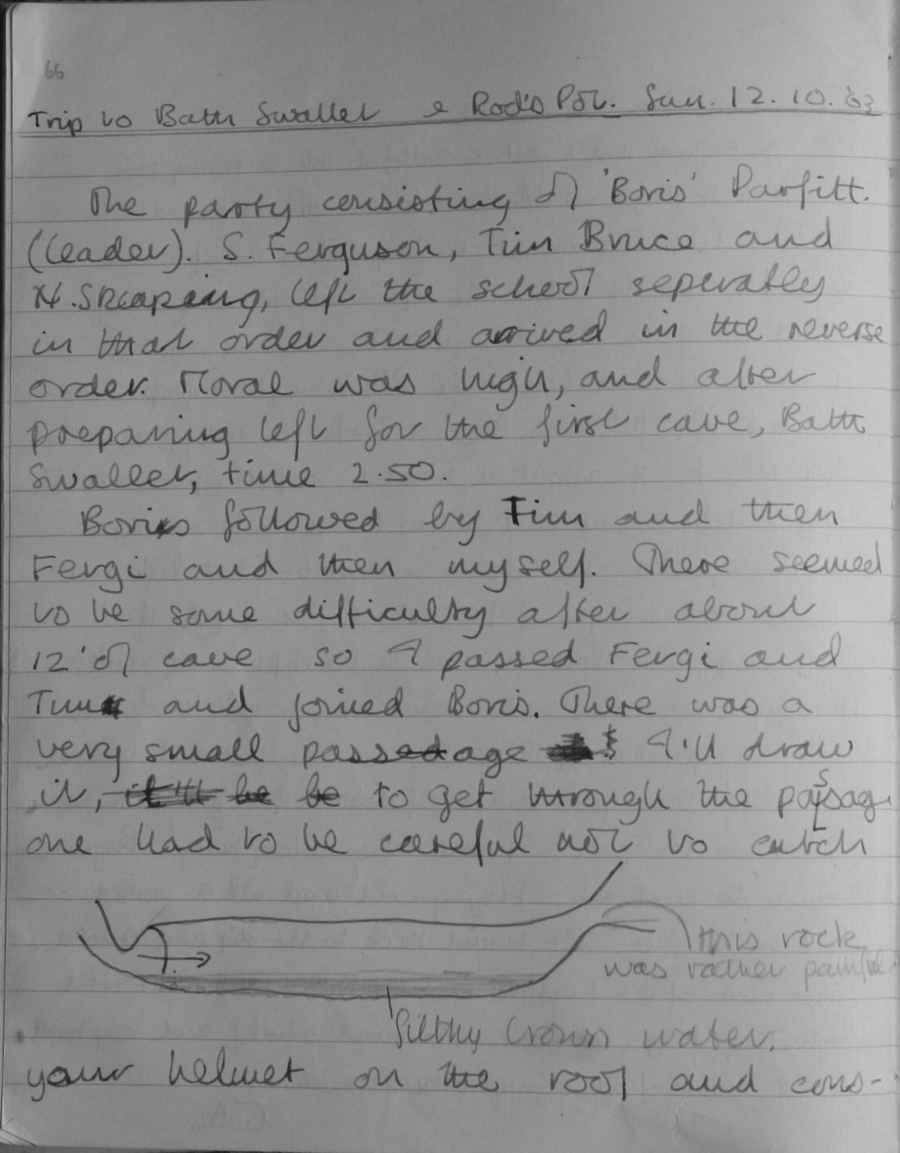 66
Trip to Bath Swallet & Rod's Pot. Sun. 12.10.83
The party consisting of 'Boris' Parfitt.
(leader). S. Ferguson, Tim Bruce and
N. Skeaping, left the school seperately
in that order and arrived in the reverse
order. Moral was high, and after
preparing left for the first cave, Bath
Swallet, time 2.50.
Boris followed by Tim and then
Fergi and then myself. There seemed
to be some difficulty after about
12' of cave so I passed Fergi and
Tim and joined Boris. There was a
very small passage I'll draw
it, to get through the passag
one had to be careful not to catch
this rock
was rather painful
filthy brown water.
your helmet on the roof and cons-